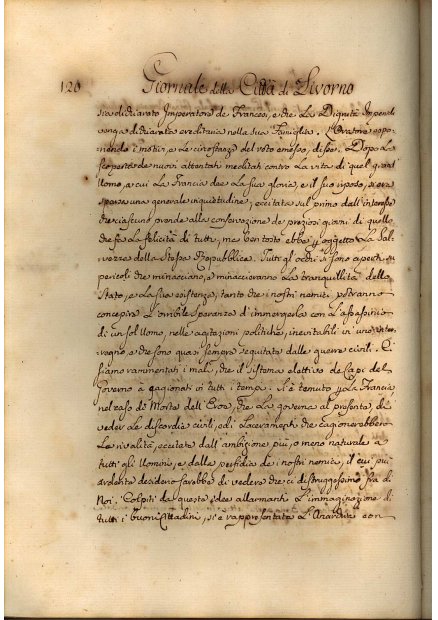 120 Giornale della Città di Livorno
sia dichiarato Imperatore de Francesi, e che La Dignità Imperi
venga dichiarata ereditaria nella sua Famiglia. L'Oratore espo-
nendo i motivi, e Le circostanze del voto emesso, disse. Dopo La
scoperta de nuovi attentati meditati contro La vita di quel grand'
Uomo, a cui La Francia dee La sua gloria, e il suo riposo, si era
sparsa una generale inquietudine, eccitata sul primo dall'interesse
che ciascuno prende alla conservazione de preziosi giorni di quello
che fa La felicità di tutti, ma ben tosto ebbe p oggetto La Sal-
vezza della Stessa Repubblica. Tutti gl'occhi si sono aperti su
pericoli che minacciano, e minaccieranno La tranquillità dello
Stato, e La sua esistenza, tanto che i nostri nemici potranno
concepire L'orribile speranza d'immergerla con L'assassinio
di un sol Uomo, nelle agitazioni politiche, inevitabili in un inter-
regno, e che sono quasi sempre seguitate dalle guerre civili. Ci
siamo rammentati i mali, che il sistema elettivo de Capi del
Governo à cagionati in tutti i tempi. Si è temuto p La Francia
nel caso di Morte dell'Eroe, che La governa al presente, di
veder Le discordie civili, ed i Laceramenti che cagionerebbero
La rivalità, eccitate dall'ambizione più, o meno naturale a
tutti gli Uomini, e dalla perfidia dei nostri nemici, il cui più
ardente desiderio sarebbe di vedere che ci distruggessimo fra di
Noi. Colpiti da queste idee allarmanti L'immaginazione di
tutti i buoni Cittadini, si è rappresentata L'Anarchia con